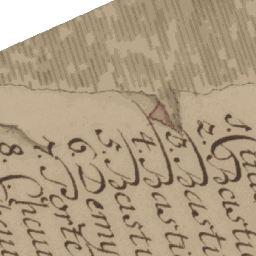 2. Basti
3. Basti
4. Basti
5. Basti
6. Demy
7. Porte
8. Chau